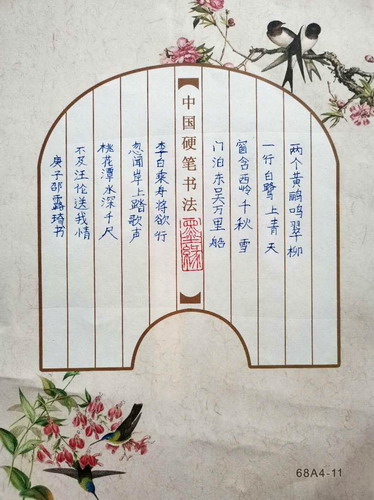 两个黄鹂鸣翠柳
一行白鹭上青天
窗含西岭千秋雪
门泊东吴万里船
中国硬笔书法
墨缘
李白乘舟将欲行
忽闻岸上踏歌声
桃花潭水深千尺
不及汪伦送我情
庚子邵露琦书
68A4-11